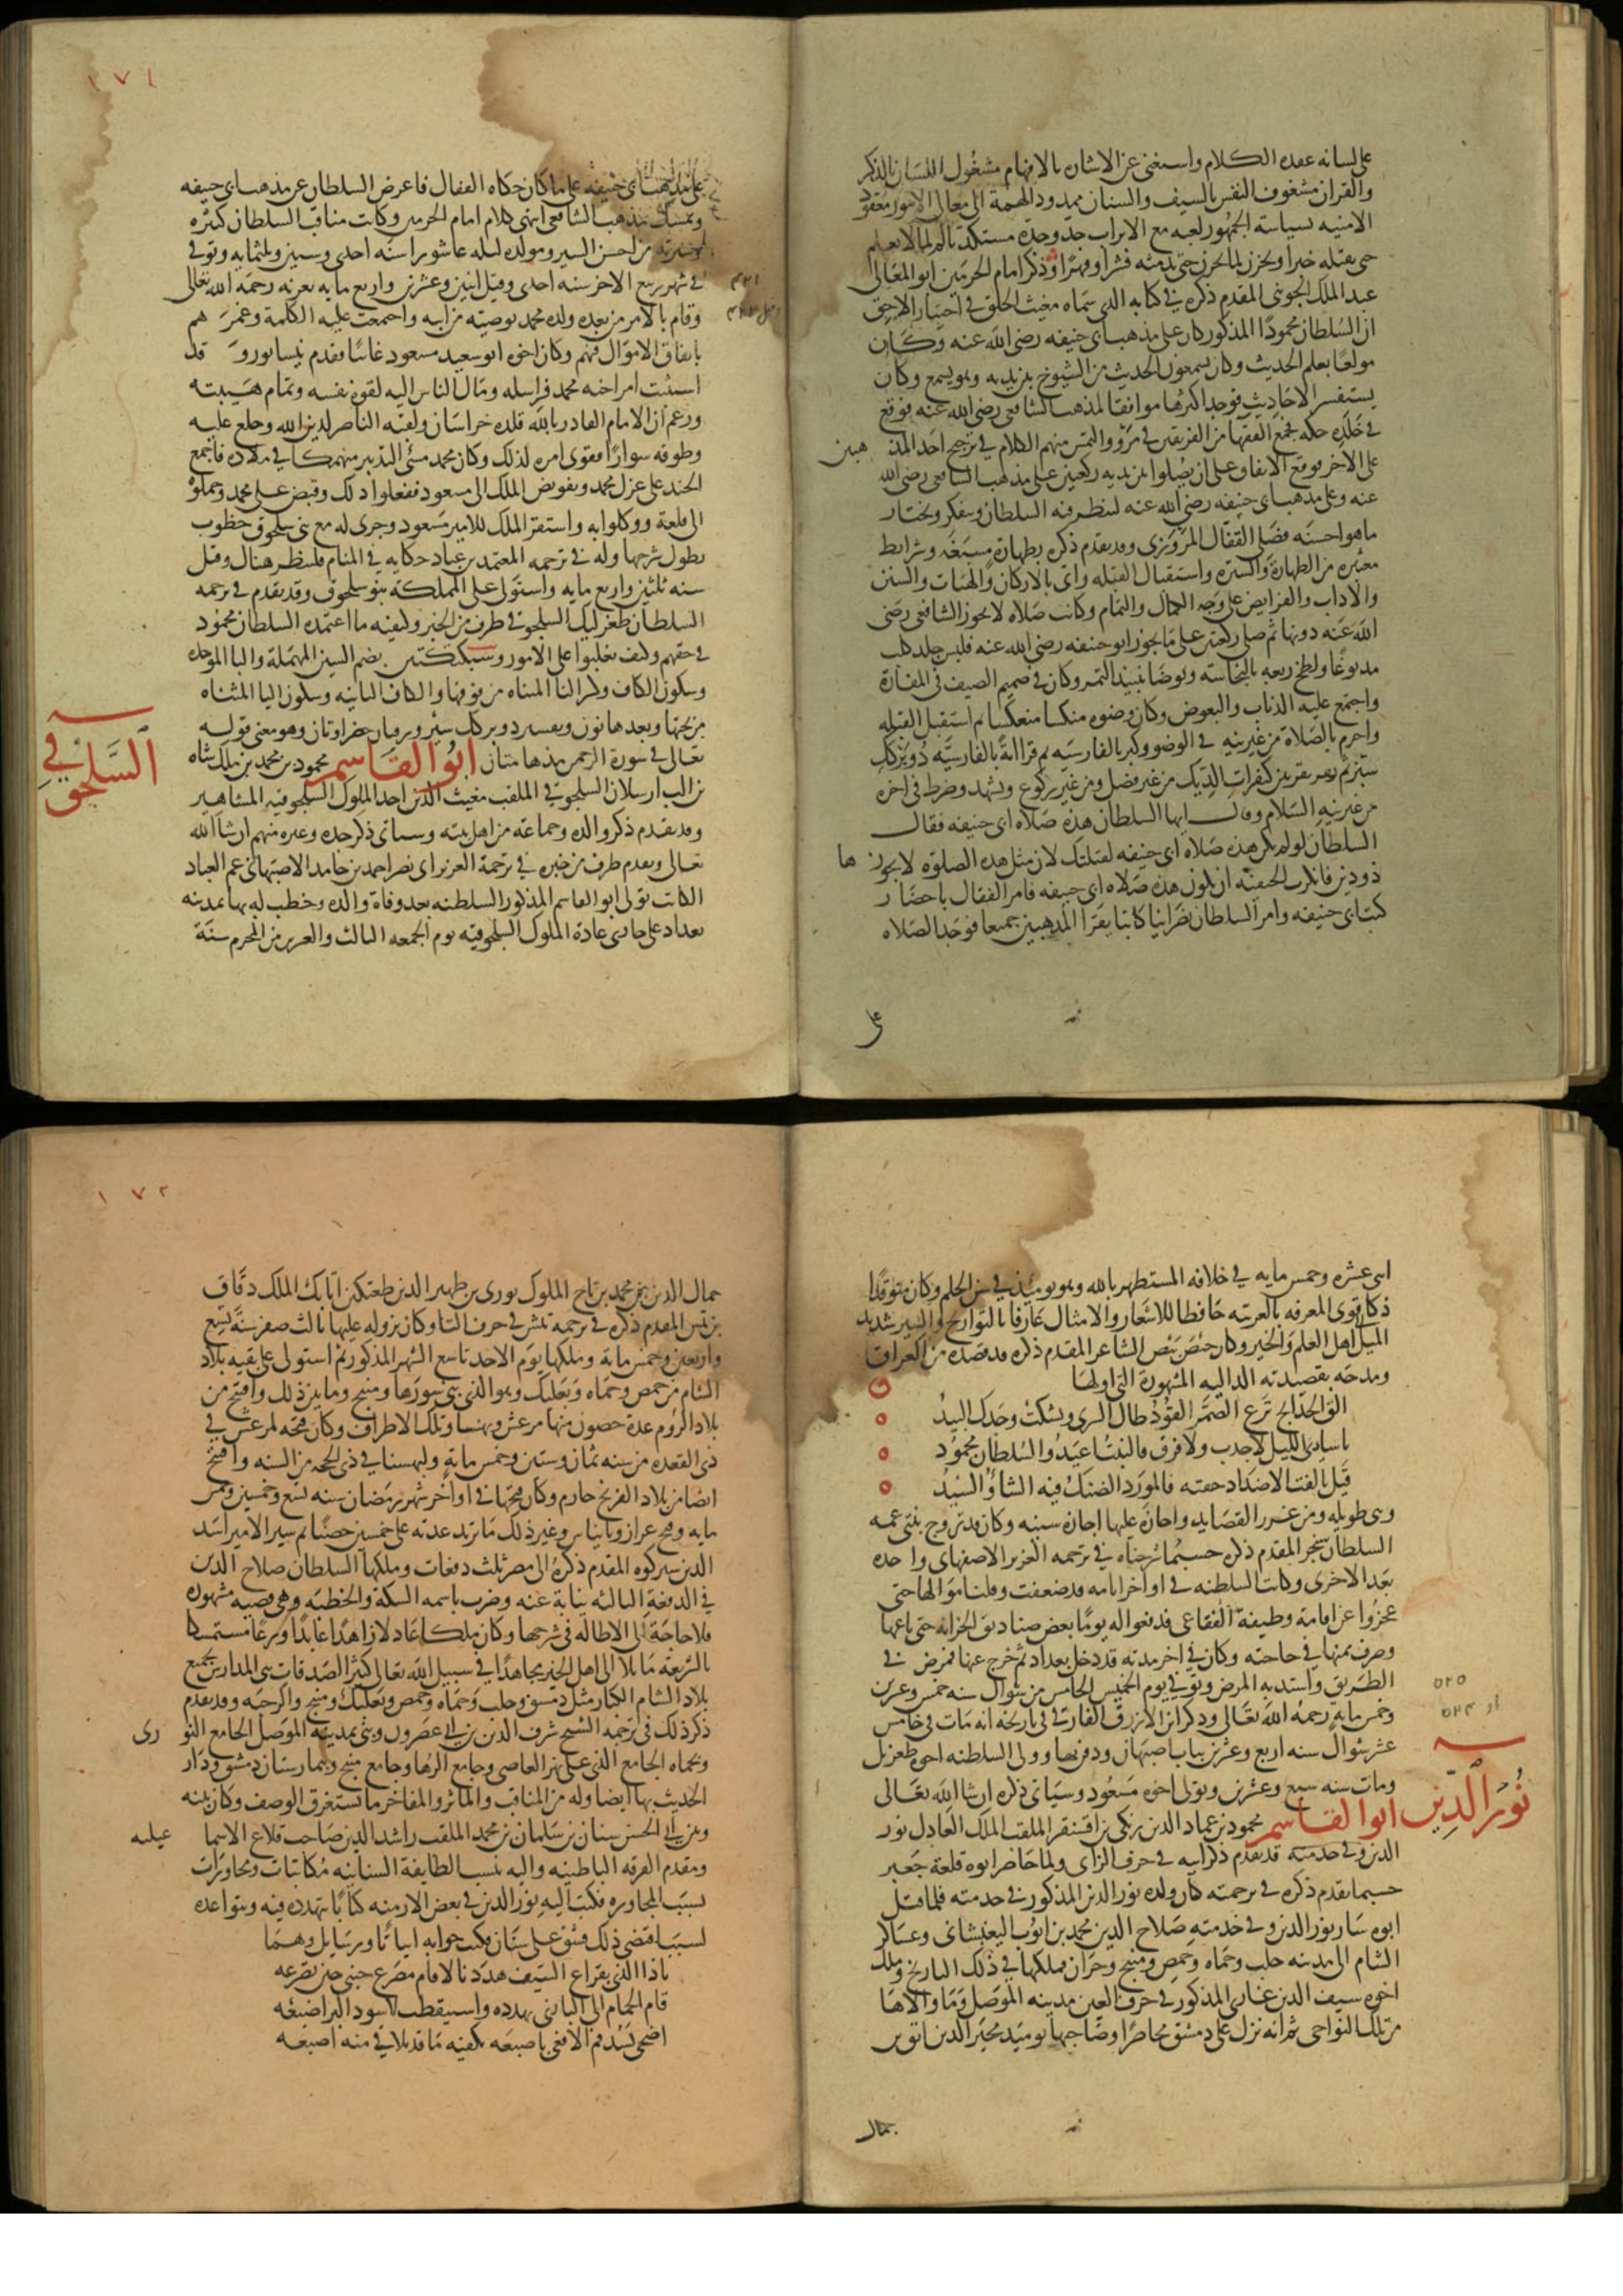 على لسانه عقده الكلام واستغنى عن الاشان بالافهام مشغول اللسان بالذكر
والقران مشغوف النفس بالسيف والسنان ممدود الهمة الى معالى الامور معقود
الامنيه بسياسة الجمهور لعبه مع الاتراب جد وجده مستكد يالم لما لا يعلم
حى يقتله خبرا ويحزن لما يحزن حتى يدمثه قسرا وقهرا وذكر امام الحرمين ابو المعالى
عبد الملك الجوينى المقدم ذكره فى كتابه الدى سماه مغيث الخلق فى اختيار الاحق
ان السلطان محمودا المذكور كان على مذهب ابى حنيفه رضى الله عنه وكان
مولعا بعلم الحديث وكان يسمعون الحديث من الشيوخ بين يديه وهو يسمع وكان
يستفسر الاحاديث فوجد اكثرها موافقا لمذهب الشافعى رضى الله عنه فوقع
فى خلده حكه فجمع الفقها من الفريقين فى مرو والتمس منهم الكلام فى ترجيح احد المذ هبين
على الاخر فوقع الاتفاق على ان يصلوا بين يديه ركعتين على مذهب الشافعى رضى الله
عنه وعلى مذهب ابى حنيفه رضى الله عنه لينظر فيه السلطان ويتفكر ويختار
ما هو احسنه فصلى القفال المروزى وقد تقدم ذكره بطهارة مسبغه وشرايط
معتبره من الطهارة والستره واستقبال القبله واتى بالاركان والهيات والسنن
والاداب والفرايض على وجه الكمال والتمام وكانت صلاه لا يجوز الشافعى رضى
الله عنه دونها ثم صلى ركعتين على ما يجوز ابو حنيفه رضى الله عنه فلبس جلد كلب
مدبوغا ولطخ ربعه بالنجاسه وتوضا بنبيذ التمر وكان فى صميم الصيف فى المفازة
واجتمع عليه الذباب والبعوض وكان وضوه منكسا منعكسا ثم استقبل القبله
واحرم بالصلاة من غير نيه فى الوضو وكبر بالفارسيه ثم قرا اية بالفارسيه دو بركك
سبز ثم نقر نقرتين كنقرات الديك من غير فصل ومن غير ركوع وتشهد وضرط فى اخره
من غير نيه السلام وقال ايها السلطان هذه صلاه ابى حنيفه فقال
السلطان لو لم تكن هذه صلاه ابى حنيفه لقتلتك لان مثل هذه الصلوة لا يجوز ها
ذو دين فانكرت الحنفيه ان تكون هذه صلاه ابى حنيفه فامر القفال باحضار
كتب ابى حنيفه وامر السلطان نصرانيا كاتبا يقرا المذهبين جميعا فوجد الصلاه
على
١٧١
على مذهب ابى حنيفه على ما كان حكاه القفال فاعرض السلطان عن مذهب ابى حنيفه
وتمسك بمذهب الشافعى انتهى كلام امام الحرمين وكانت مناقب السلطان كثيره
وسيرته من احسن السير ومولده ليله عاشورا سنه احدى وستين وثلثمايه وتوفى
فى شهر ربيع الاخر سنه احدى وقيل اثنين وعشرين واربع مايه بغزنه رحمه الله تعالى
٤٢١
وقيل ٤٢٢
وقام بالامر من بعده ولده محمد بوصيته من ابيه واجتمعت عليه الكلمة وغمر هم
بانفاق الاموال فيهم وكان اخوه ابو سعيد مسعود غائبا فقدم نيسابور وقد
استتبت امر اخيه محمد فراسله ومال الناس اليه لقوه نفسه وتمام هيبته
وزعم ان الامام القادر بالله قلده خراسان ولقبه الناصر لدين الله وخلع عليه
وطوقه سوارا فقوى امره لذلك وكان محمد سئى التدبير منهمكا فى ملاده فاجمع
الجند على عزل محمد وتفويض الملك الى مسعود ففعلوا ذلك وقبض على محمد وحملوه
الى قلعة ووكلوا به واستقر الملك للامير مسعود وجرى له مع بنى سلجوق خطوب
يطول شرحها وله فى ترجمه المعتمد بن عباد حكايه فى المنام فلينظر هناك وقتل
سنه ثلثين واربع مايه واستولى على المملكة بنو سلجوق وقد تقدم فى ترجمه
السلطان طغرلبك السلجوقى طرف من الخبر وكيفيه ما اعتمده السلطان محمود
فى حقهم وكيف تغلبوا على الامور وسبكتكين بضم السين المهملة والبا الموحده
وسكون الكاف وكسر التا المثناه من فوقها والكاف الثانيه وسكون اليا المثناه
من تحتها وبعدها نون وتفسير دو بركك سبز ورقتان خضراوتان وهو معنى قوله
تعالى فى سورة الرحمن مدهامتان ابو القاسم محمود بن محمد بن ملكشاه
السلجوقي
بن الب ارسلان السلجوقى الملقب مغيث الدين احد الملوك السلجوقيه المشاهير
وقد تقدم ذكر والده وجماعه من اهل بيته وسياتى ذكر جده وغيره منهم ان شا الله
تعالى وتقدم طرف من خبره فى ترجمة العزيز ابى نصر احمد بن حامد الاصبهانى عم العماد
الكاتب تولى ابو القاسم المذكور السلطنه بعد وفاة والده وخطب له بها بمدينه
بغداد على جارى عادة الملوك السلجوقيه يوم الجمعه الثالث والعشرين من المحرم سنة
اثنى عشره وخمس مايه فى خلافه المستظهر بالله وهو يومئذ فى سن الحلم وكان متوقدا
ذكا قوى المعرفه بالعربيه حافظا للاشعار والامثال عارفا بالتواريخ والسير شديد
الميل لاهل العلم والخير وكان حيص بيص الشاعر المقدم ذكره قد قصده من العراق
ومدحه بقصيدته الداليه المشهورة التى اولها
الق الحدايج ترع الضمر القود طال السرى وتشكت وخدك البيد
يا سارى الليل لا جدب ولا فرق فالنبت اغيد والسلطان محمود
قيل بالفت الاضداد خيفته فالمورد الضنك فيه الشاء والسيد
وهى طويله ومن غرر القصايد واجازه عليها اجازه سنيه وكان قد تزوج بنتى عمه
السلطان سنجر المقدم ذكره حسبما شرحناه فى ترجمه العزيز الاصفهانى واحده
بعد الاخرى وكانت السلطنه فى اواخر ايامه قد ضعفت وقلت اموالها حتى
عجزوا عن اقامة وظيفة الفقاعى فدفعوا له يوما بعض صناديق الخزانه حتى باعها
وصرف ثمنها فى حاجته وكان فى اخر مدته قد دخل بغداد ثم خرج عنها فمرض فى
الطريق واشتد به المرض وتوفى يوم الخميس الخامس من شوال سنه خمس وعشرين
٥٢٥
او ٥٢٤
وخمس مايه رحمه الله تعالى وذكر ابن الازرق الفارقى فى تاريخه انه مات فى خامس
عشر شوال سنه اربع وعشرين بباب اصبهان ودفن بها وولى السلطنه اخى طغريل
ومات سنه سبع وعشرين وتولى اخوه مسعود وسياتى ذكره ان شا الله تعالى
نور الدين
ابو القاسم محمود بن عماد الدين زنكى بن اقسنقر الملقب الملك العادل نور
الدين وفى خدمته قد تقدم ذكر ابيه فى حرف الزاى ولما حاضر ابوه قلعة جعبر
حسبما تقدم ذكره فى ترجمته كان ولده نور الدين المذكور فى خدمته فلما قتل
ابوه سار نور الدين وفى خدمته صلاح الدين محمد بن ايوب اليغبشانى وعساكر
الشام الى مدينه حلب وحماه وحمص ومنبج وحران فملكها فى ذلك التاريخ وملك
اخوه سيف الدين غازى المذكور فى حرف الغين مدينه الموصل وما والاها
من تلك النواحى ثم انه نزل على دمشق محاصرا وصاحبها يوميذ مجير الدين ابق بن
جمال
١٧٢
جمال الدين بن محمد بن تاج الملوك بورى بن ظهير الدين طغتكين اتابك الملك دقاق
بن تتش المقدم ذكره فى ترجمة تتش فى حرف التا وكان نزوله عليها ثالث صفر سنة تسع
واربعين وخمس ماية وملكها يوم الاحد تاسع الشهر المذكور ثم استولى على بقيه بلاد
الشام من حمص وحماه وبعلبك وهو الذى بنى سورها ومنبج وما بين ذلك وافتتح من
بلاد الروم عدة حصون منها مرعش وبهنسا وتلك الاطراف وكان فتحه لمرعش فى
ذى القعده من سنه ثمان وستين وخمس ماية ولبهسنا فى ذى الحجه من السنه وافتتح
ايضا من بلاد الفرنج حارم وكان فتحها فى اواخر شهر رمضان سنه تسع وخمسين وخمس
مايه وفتح عزاز وبانياس وغير ذلك ما تزيد عدته على خمسين حصنا ثم سير الامير اسد
الدين شيركوه المقدم ذكره الى مصر ثلث دفعات وملكها السلطان صلاح الدين
فى الدفعة الثالثه نيابة عنه وضرب باسمه السكة والخطبه وهى قضيه مشهوره
فلا حاجة الى الاطاله فى شرحها وكان ملكا عادلا زاهدا عابدا ورعا مستمسكا
بالشريعه مايلا الى اهل الخير مجاهدا فى سبيل الله تعالى كثير الصدقات بنى المدارس بجميع
بلاد الشام الكبار مثل دمشق وحلب وحماه وحمص وبعلبك ومنبج والرحبه وقد تقدم
ذكر ذلك فى ترجمة الشيخ شرف الدين بن ابى عصرون وبنى بمدينه الموصل الجامع النو رى
وبحماه الجامع الذى على نهر العاصى وجامع الرها وجامع منبج وبيمارستان دمشق ودار
الحديث بها ايضا وله من المناقب والماثر والمفاخر ما تستغرق الوصف وكان بينه
وبين ابى الحسن سنان بن سلمان بن محمد الملقب راشد الدين صاحب قلاع الاسما عيليه
ومقدم الفرقه الباطنيه واليه تنسب الطايفة السنانيه مكاتبات ومحاورات
بسبب المجاوره فكتب اليه نور الدين فى بعض الازمنه كتابا يتهدده فيه ويتواعده
لسبب اقتضى ذلك فشق على سنان فكتب جوابه ابياتا ورسايل وهما
يا ذا الذى بقراع السيف هددنا لا قام مصرع جنبى حين تصرعه
قام الحمام الى البازى يهدده واستيقظت لاسود البر اضبعه
اضحى يسد فم الافعى باصبعه يكفيه ما قد يلاقى منه اصبعه